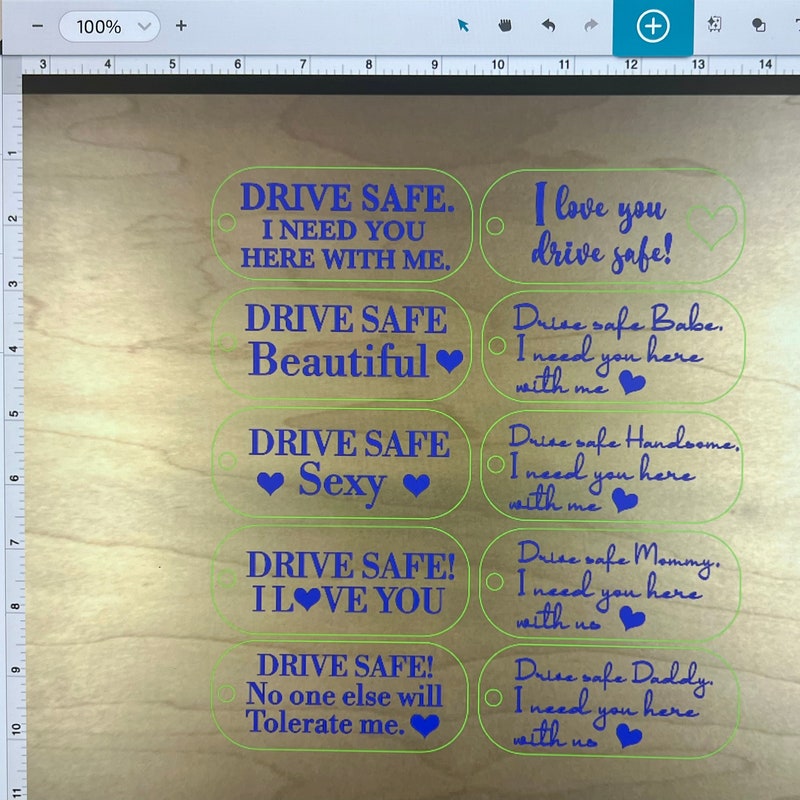 100%
3 4 5 6 7 8 9 10 11 12 13 14
1
2
3
4
5
6
7
8
9
10
11
DRIVE SAFE.
I NEED YOU
HERE WITH ME.
I love you
drive safe!
DRIVE SAFE
Beautiful
Drive safe Babe.
I need you here
with me
DRIVE SAFE
Sexy
Drive safe Handsome.
I need you here
with me
DRIVE SAFE!
I L♥VE YOU
Drive safe Mommy.
I need you here
with us
DRIVE SAFE!
No one else will
Tolerate me.
Drive safe Daddy.
I need you here
with us